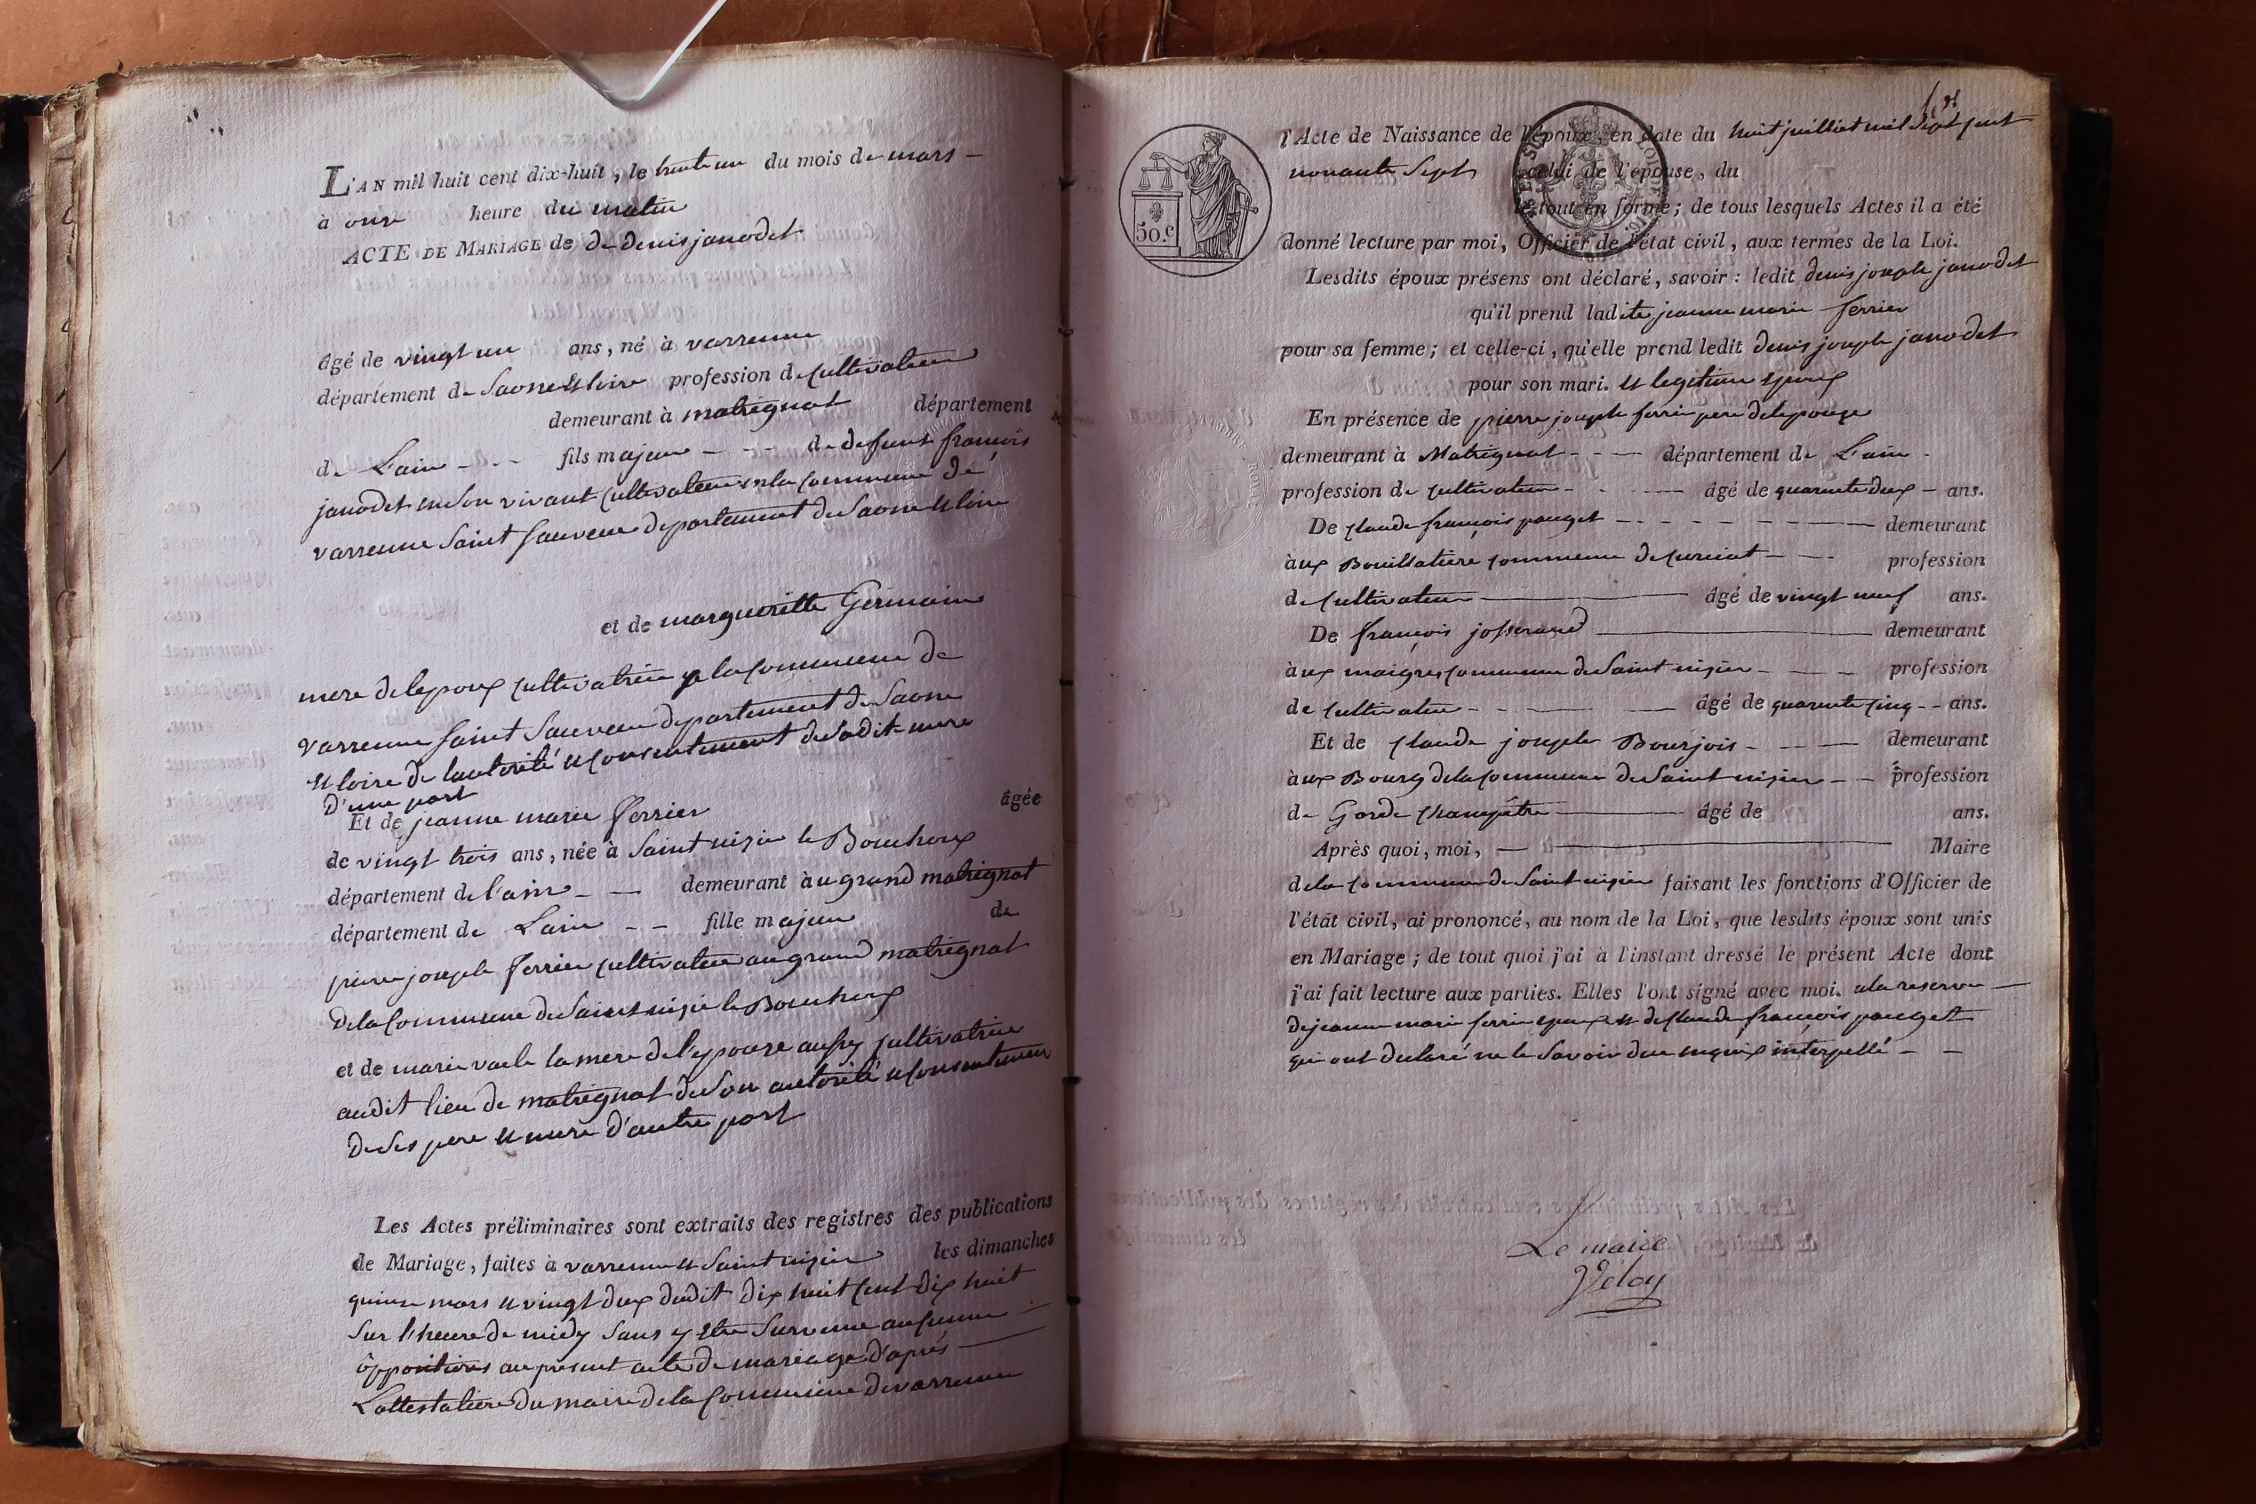 L'AN mil huit cent dix-huit, le trente un du mois de mars –
à onze heure du matin
ACTE DE MARIAGE de de denis janodet
âgé de vingt un ans, né à varrenne
département de Saone et loire profession de cultivateur
demeurant à matrignat département
de L'ain - - - fils majeur - - - de defunt françois
janodet en son vivant cultivateur en la commune de
varrenne saint sauveur departement de Saone et loire
et de margueritte Germain
mere de lepoux cultivatrice la commune de
varrenne saint sauveur departement de Saone
et loire de lautorité et consentement de sadit mere
d'une part
Et de jeanne marie ferrier âgée
de vingt trois ans, née à Saint nizier le Bouchoux
département de l'ain - — demeurant à au grand matrignat
département de L'ain - - fille majeur de
pierre joseph ferrier cultivateur au grand matrignat
de la commune de Saint nizier le Bouchoux
et de marie la mere de l'epouse aussy cultivatrice
audit lieu de matrignat de son autorité et consentement
de ses pere et mere d'autre part
Les Actes préliminaires sont extraits des registres des publications
de Mariage, faites à varrenne et Saint nizier les dimanches
quinze mars et vingt deux dudit dix huit cent dix huit
sur l'heure de midy sans y etre survenue aucunne —
oppositions au present acte de mariage d'après —
L'attestation du maire de la commune de varrenne
50.c
l'Acte de Naissance de l'époux, en date du huit juilliet mil sept cent
nonante sept celui de l'épouse, du
le tout en forme; de tous lesquels Actes il a été
donné lecture par moi, Officier de l'état civil, aux termes de la Loi.
Lesdits époux présens ont déclaré, savoir : ledit denis joseph janodet
qu'il prend ladite jeanne marie ferrier
pour sa femme; et celle-ci, qu'elle prend ledit denis joseph janodet
pour son mari. et legitime epoux
En présence de pierre joseph ferrier pere de lepouze
demeurant à Matrignat - - — département de L'ain -
profession de cultivateur - - — âgé de quarante deux – ans.
De claude françois pauget - - - - - — demeurant
à ux Bouillatiere commune de curciat - - - profession
de cultivateur — âgé de vingt neuf ans.
De françois josserand — demeurant
à ux maigres commune de Saint nizier - - - profession
de cultivateur - - — âgé de quarante cinq - - ans.
Et de claude joseph Bourjois - - - — demeurant
à ux Bourg de la commune de Saint nizier - - profession
de Garde champêtre — âgé de ans.
Après quoi, moi, — Maire
de la commune de Saint nizier faisant les fonctions d'Officier de
l'état civil, ai prononcé, au nom de la Loi, que lesdits époux sont unis
en Mariage ; de tout quoi j'ai à l'instant dressé le présent Acte dont
j'ai fait lecture aux parties. Elles l'ont signé avec moi. a la reserve —
de jeanne marie ferrier epouse et de claude françois pauget
qui ont declaré ne le savoir due enquis interpellé - -
Le maire
Véloy